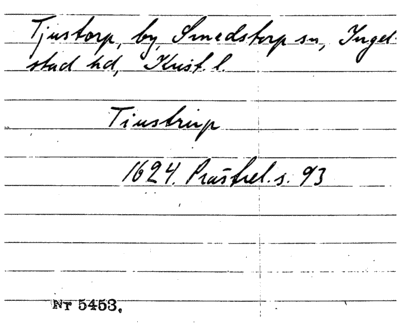 Tjustorp, by, Smedstorp sn, Ingel-
stad hd, Krist. l.
Tiustrup
1624. Prästrel. s. 93
Nr 5453.